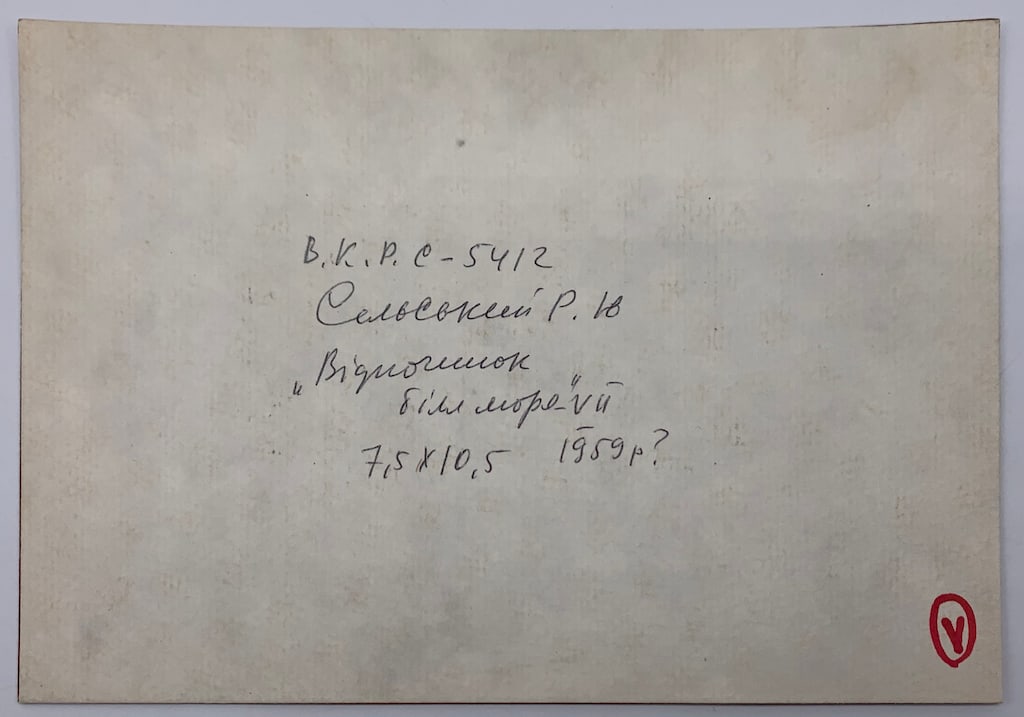 В.К.Р. С-5412
Сельський Р. Ю
„Відпочинок
біля моря" VII
7,5 х 10,5 1959 р?
V